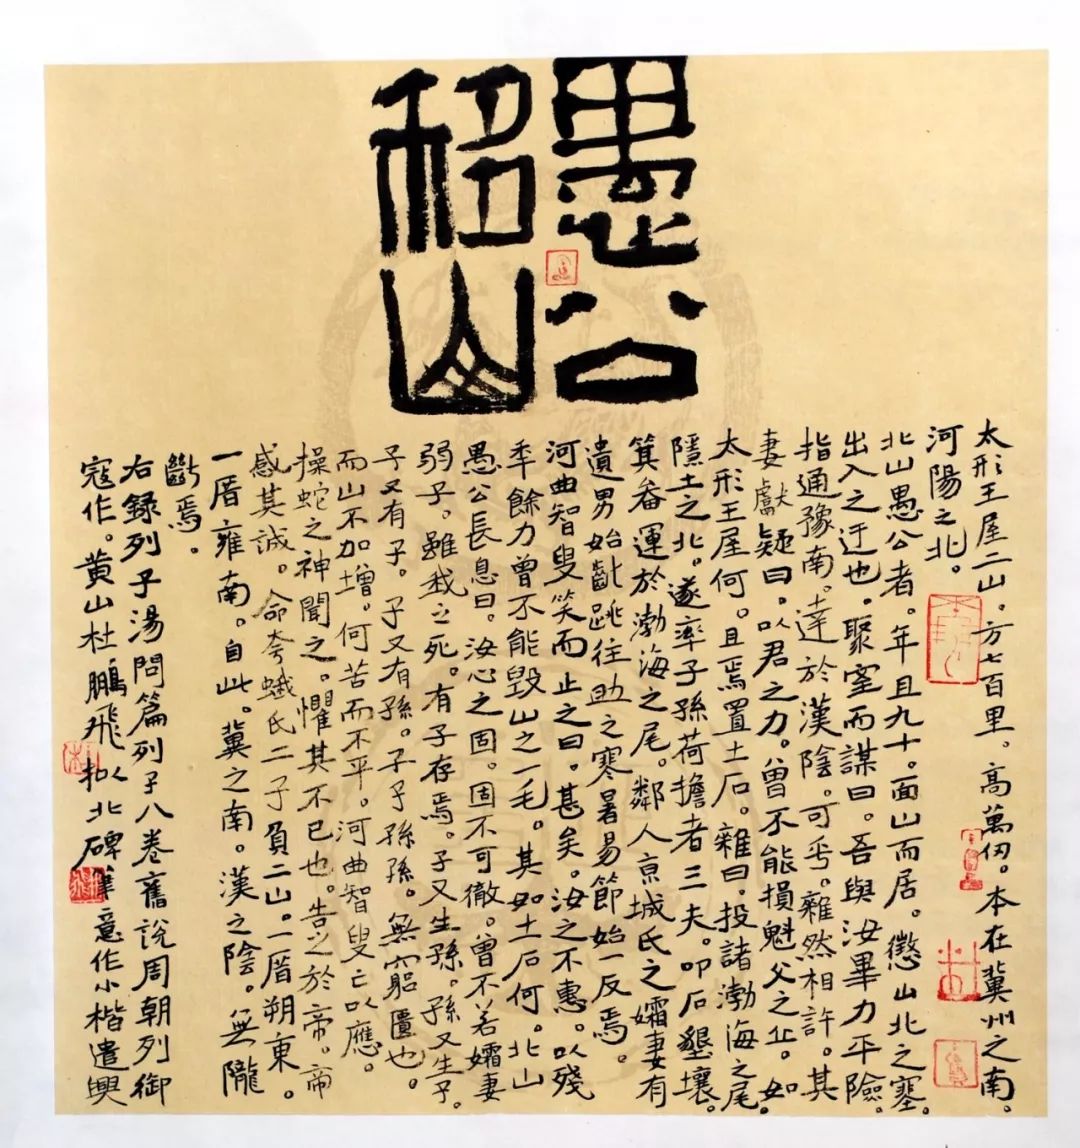 愚公
移山
太形王屋二山。方七百里。高萬仞。本在冀州之南。
河陽之北。
北山愚公者。年且九十。面山而居。懲山北之塞。
出入之迂也。聚室而謀曰。吾與汝畢力平險。
指通豫南。達於漢陰。可乎。雜然相許。其
妻獻疑曰。以君之力。曾不能損魁父之丘。如
太形王屋何。且焉置土石。雜曰。投諸渤海之尾。
隱土之北。遂率子孫荷擔者三夫。叩石墾壤。
箕畚運於渤海之尾。鄰人京城氏之孀妻有
遺男始齔跳往助之寒暑易節始一反焉。
河曲智叟笑而止之曰。甚矣。汝之不惠。以殘
年餘力曾不能毀山之一毛。其如土石何。北山
愚公長息曰。汝心之固。固不可徹。曾不若孀妻
弱子。雖我之死。有子存焉。子又生孫。孫又生子。
子又有子。子又有孫。子子孫孫。無窮匱也。
而山不加增。何苦而不平。河曲智叟亡以應。
操蛇之神聞之。懼其不已也。告之於帝。帝
感其誠。命夸蛾氏二子負二山。一厝朔東。
一厝雍南。自此。冀之南。漢之陰。無隴
斷焉。
右録列子湯問篇列子八卷舊説周朝列御
寇作。黃山杜鵬飛拟北碑筆意作小楷遣興